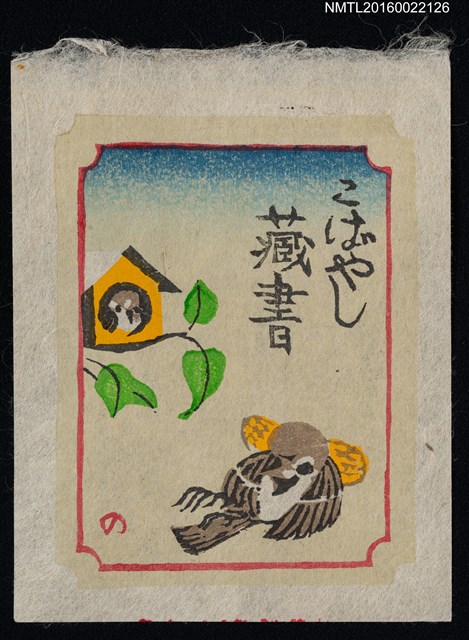 NMTL20160022126
こばやし
藏書
の